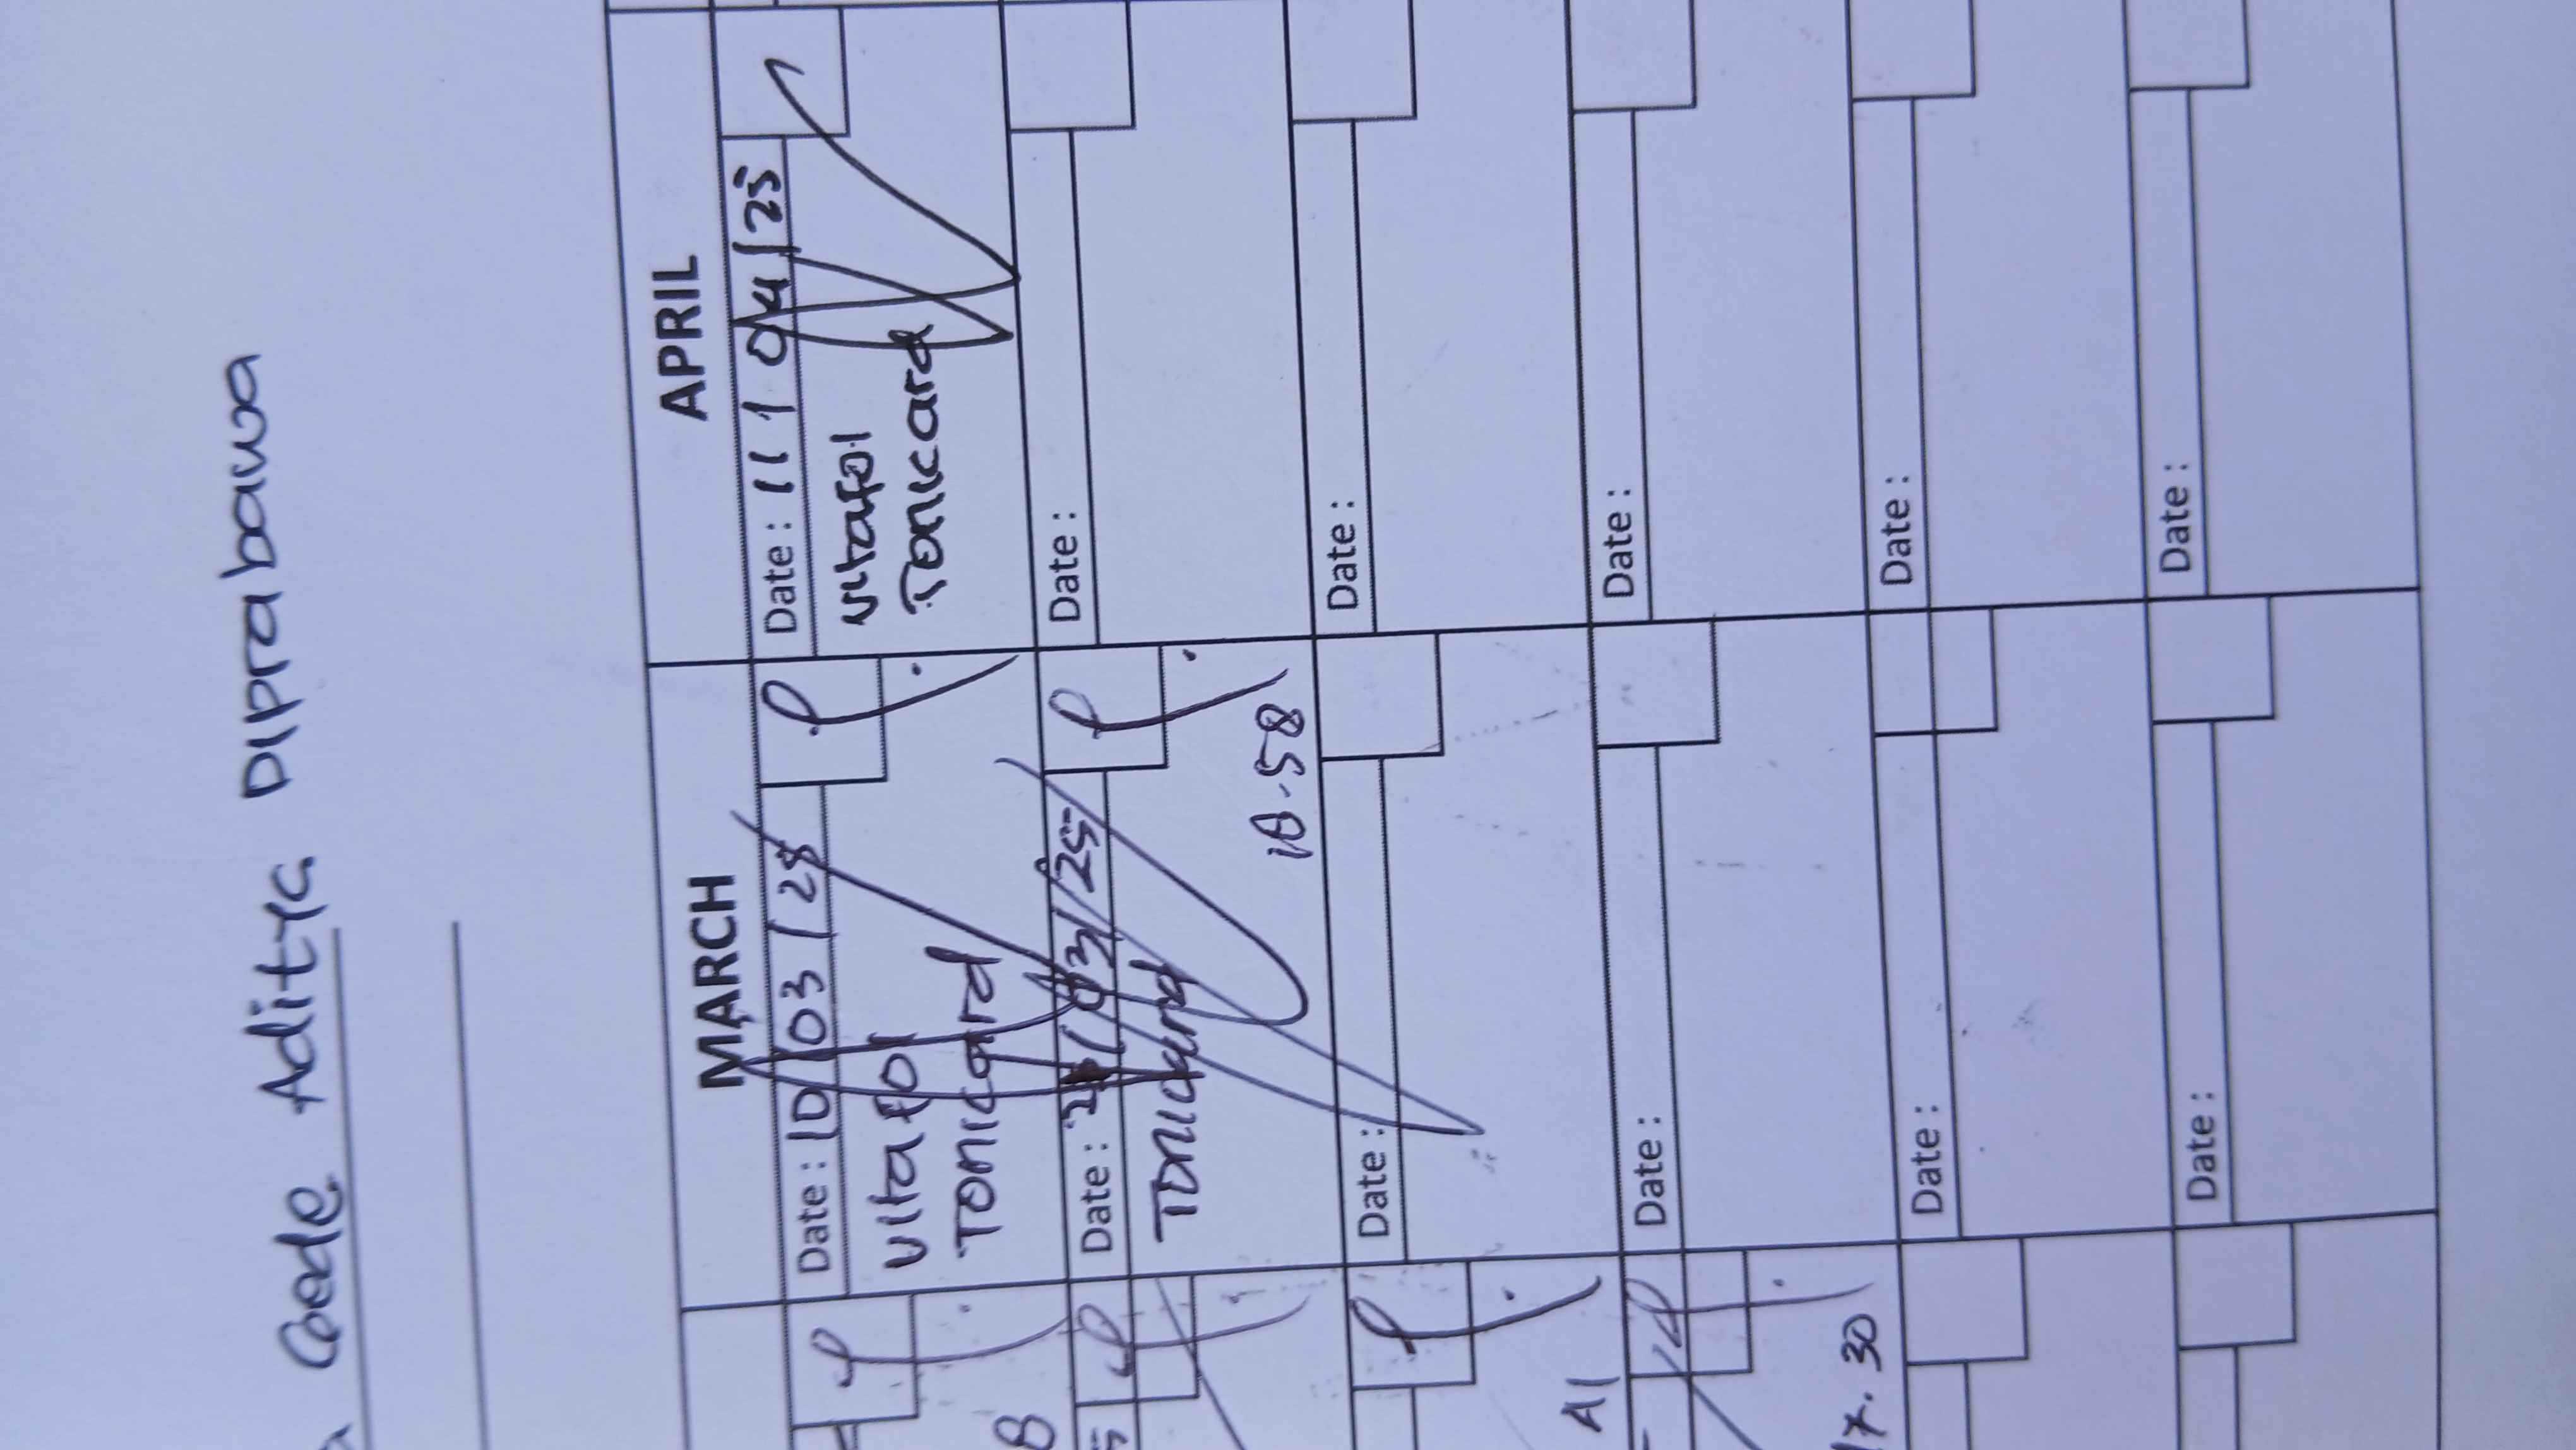 Gede Aditya Diprabawa
MARCH
APRIL
Date : 10/03/25
Vitafol
Tonicard
Date : 11/04/25
Vitafol
Tonicard
Date : /03/25
Tonicard
18.58
Date :
Date :
Date :
A1
Date :
Date :
17.30
Date :
Date :
Date :
Date :